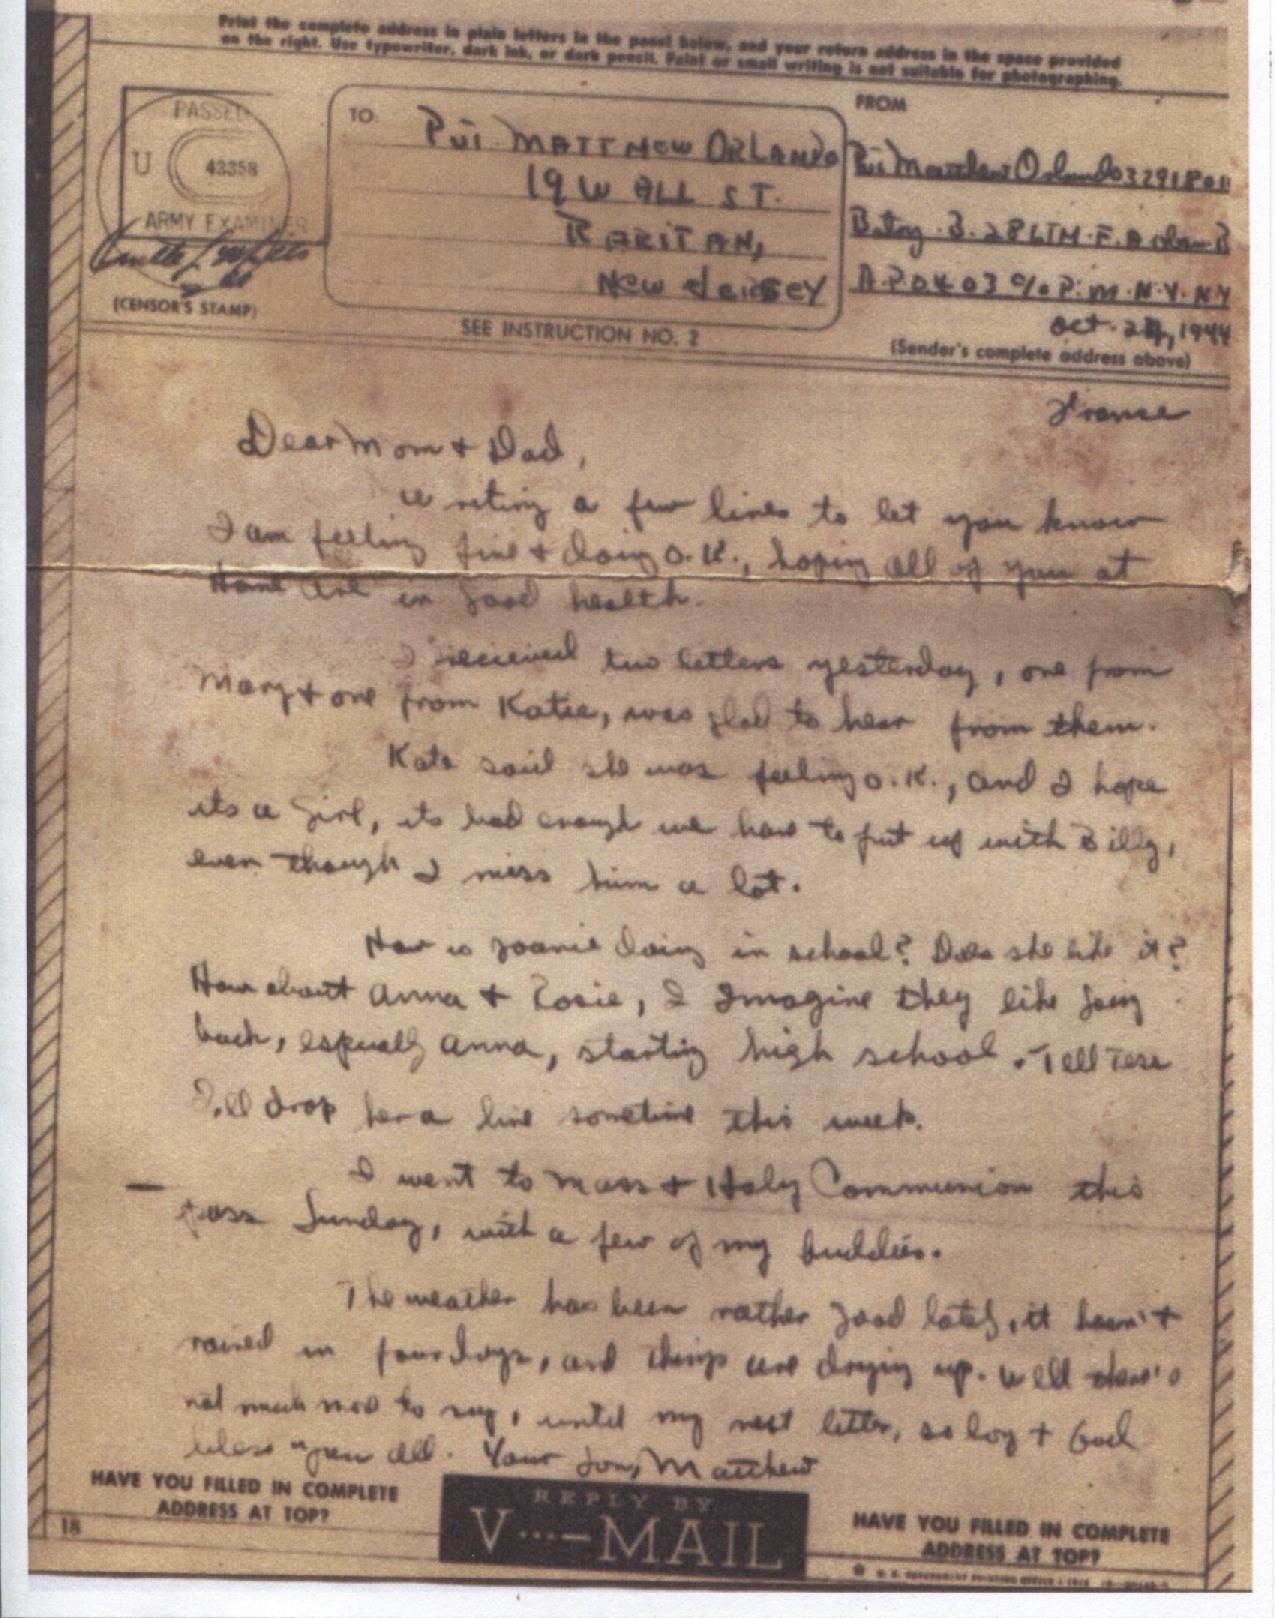 Print the complete address in plain letters in the panel below, and your return address in the space provided
on the right. Use typewriter, dark ink, or dark pencil. Faint or small writing is not suitable for photographing.
PASSED
U 43358
ARMY EXAMINER
(CENSOR'S STAMP)
TO
Pvt. MATTHEW ORLANDO
19 WALL ST.
RARITAN,
New Jersey
SEE INSTRUCTION NO. 2
FROM
Pvt Matthew Orlando 32918011
Btry. B. 28 F.A.
A.P.O 403 % P.M. N.Y. N.Y
Oct. 1944
(Sender's complete address above)
France
Dear Mom + Dad,
Writing a few lines to let you know
I am feeling fine + doing O.K., hoping all of you at
Home are in good health.
I received two letters yesterday, one from
Mary + one from Katie, was glad to hear from them.
Kate said she was feeling O.K., and I hope
its a Girl, its bad enough we have to put up with Billy,
even though I miss him a lot.
How is Joanie doing in school? Does she like it?
How about Anna + Rosie, I Imagine they like going
back, espically Anna, starting high school. Tell Tess
I'll drop her a line sometime this week.
I went to Mass + Holy Communion this
pass Sunday, with a few of my buddies.
The weather has been rather good lately, it hasn't
rained in four days, and things are drying up. Well there's
not much more to say, until my next letter, so long + God
bless you all. Your Son, Matthew
HAVE YOU FILLED IN COMPLETE
ADDRESS AT TOP?
REPLY BY
V···—MAIL
HAVE YOU FILLED IN COMPLETE
ADDRESS AT TOP?
18
U. S. GOVERNMENT PRINTING OFFICE